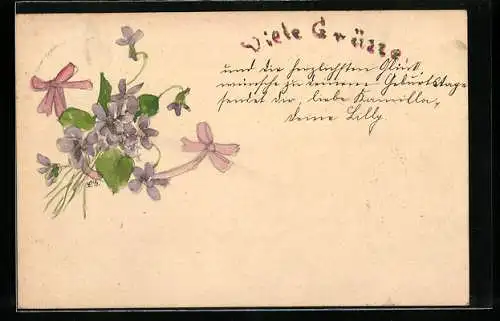 Viele Grüsse
und die herzlichsten Glück
wünsche zu deinem Geburtstage
sendet Dir, liebe Kamilla,
Deine Lilly.